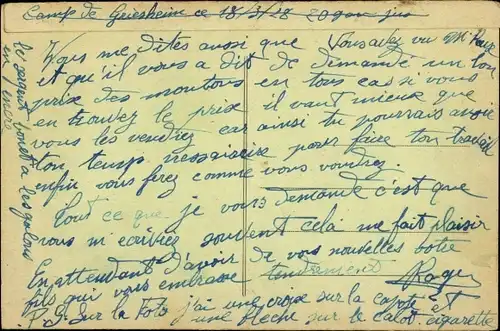 Camp de Griesheim ce 18/3/28
Vous me dites aussi que Vous avez vu Mr
et qu'il vous a dit de demandé un bon
prix des moutons en tous cas si vous
en trouvez le prix il vaut mieux que
vous les vendrez car ainsi tu pourrais avoir
ton temps nessaisaire pour faire ton travail
enfin vous ferez comme vous voudrez.
Tout ce que je vous demande c'est que
vous m'ecriviez souvent cela me fait plaisir
En attendant d'avoir de vos nouvelles votre
fils qui vous embrasse tendrement
Roger
P.S. Sur la Foto j'ai une croix sur la capote et
une fleche sur le calot cigarette
le sergent a les galons
en l'encre